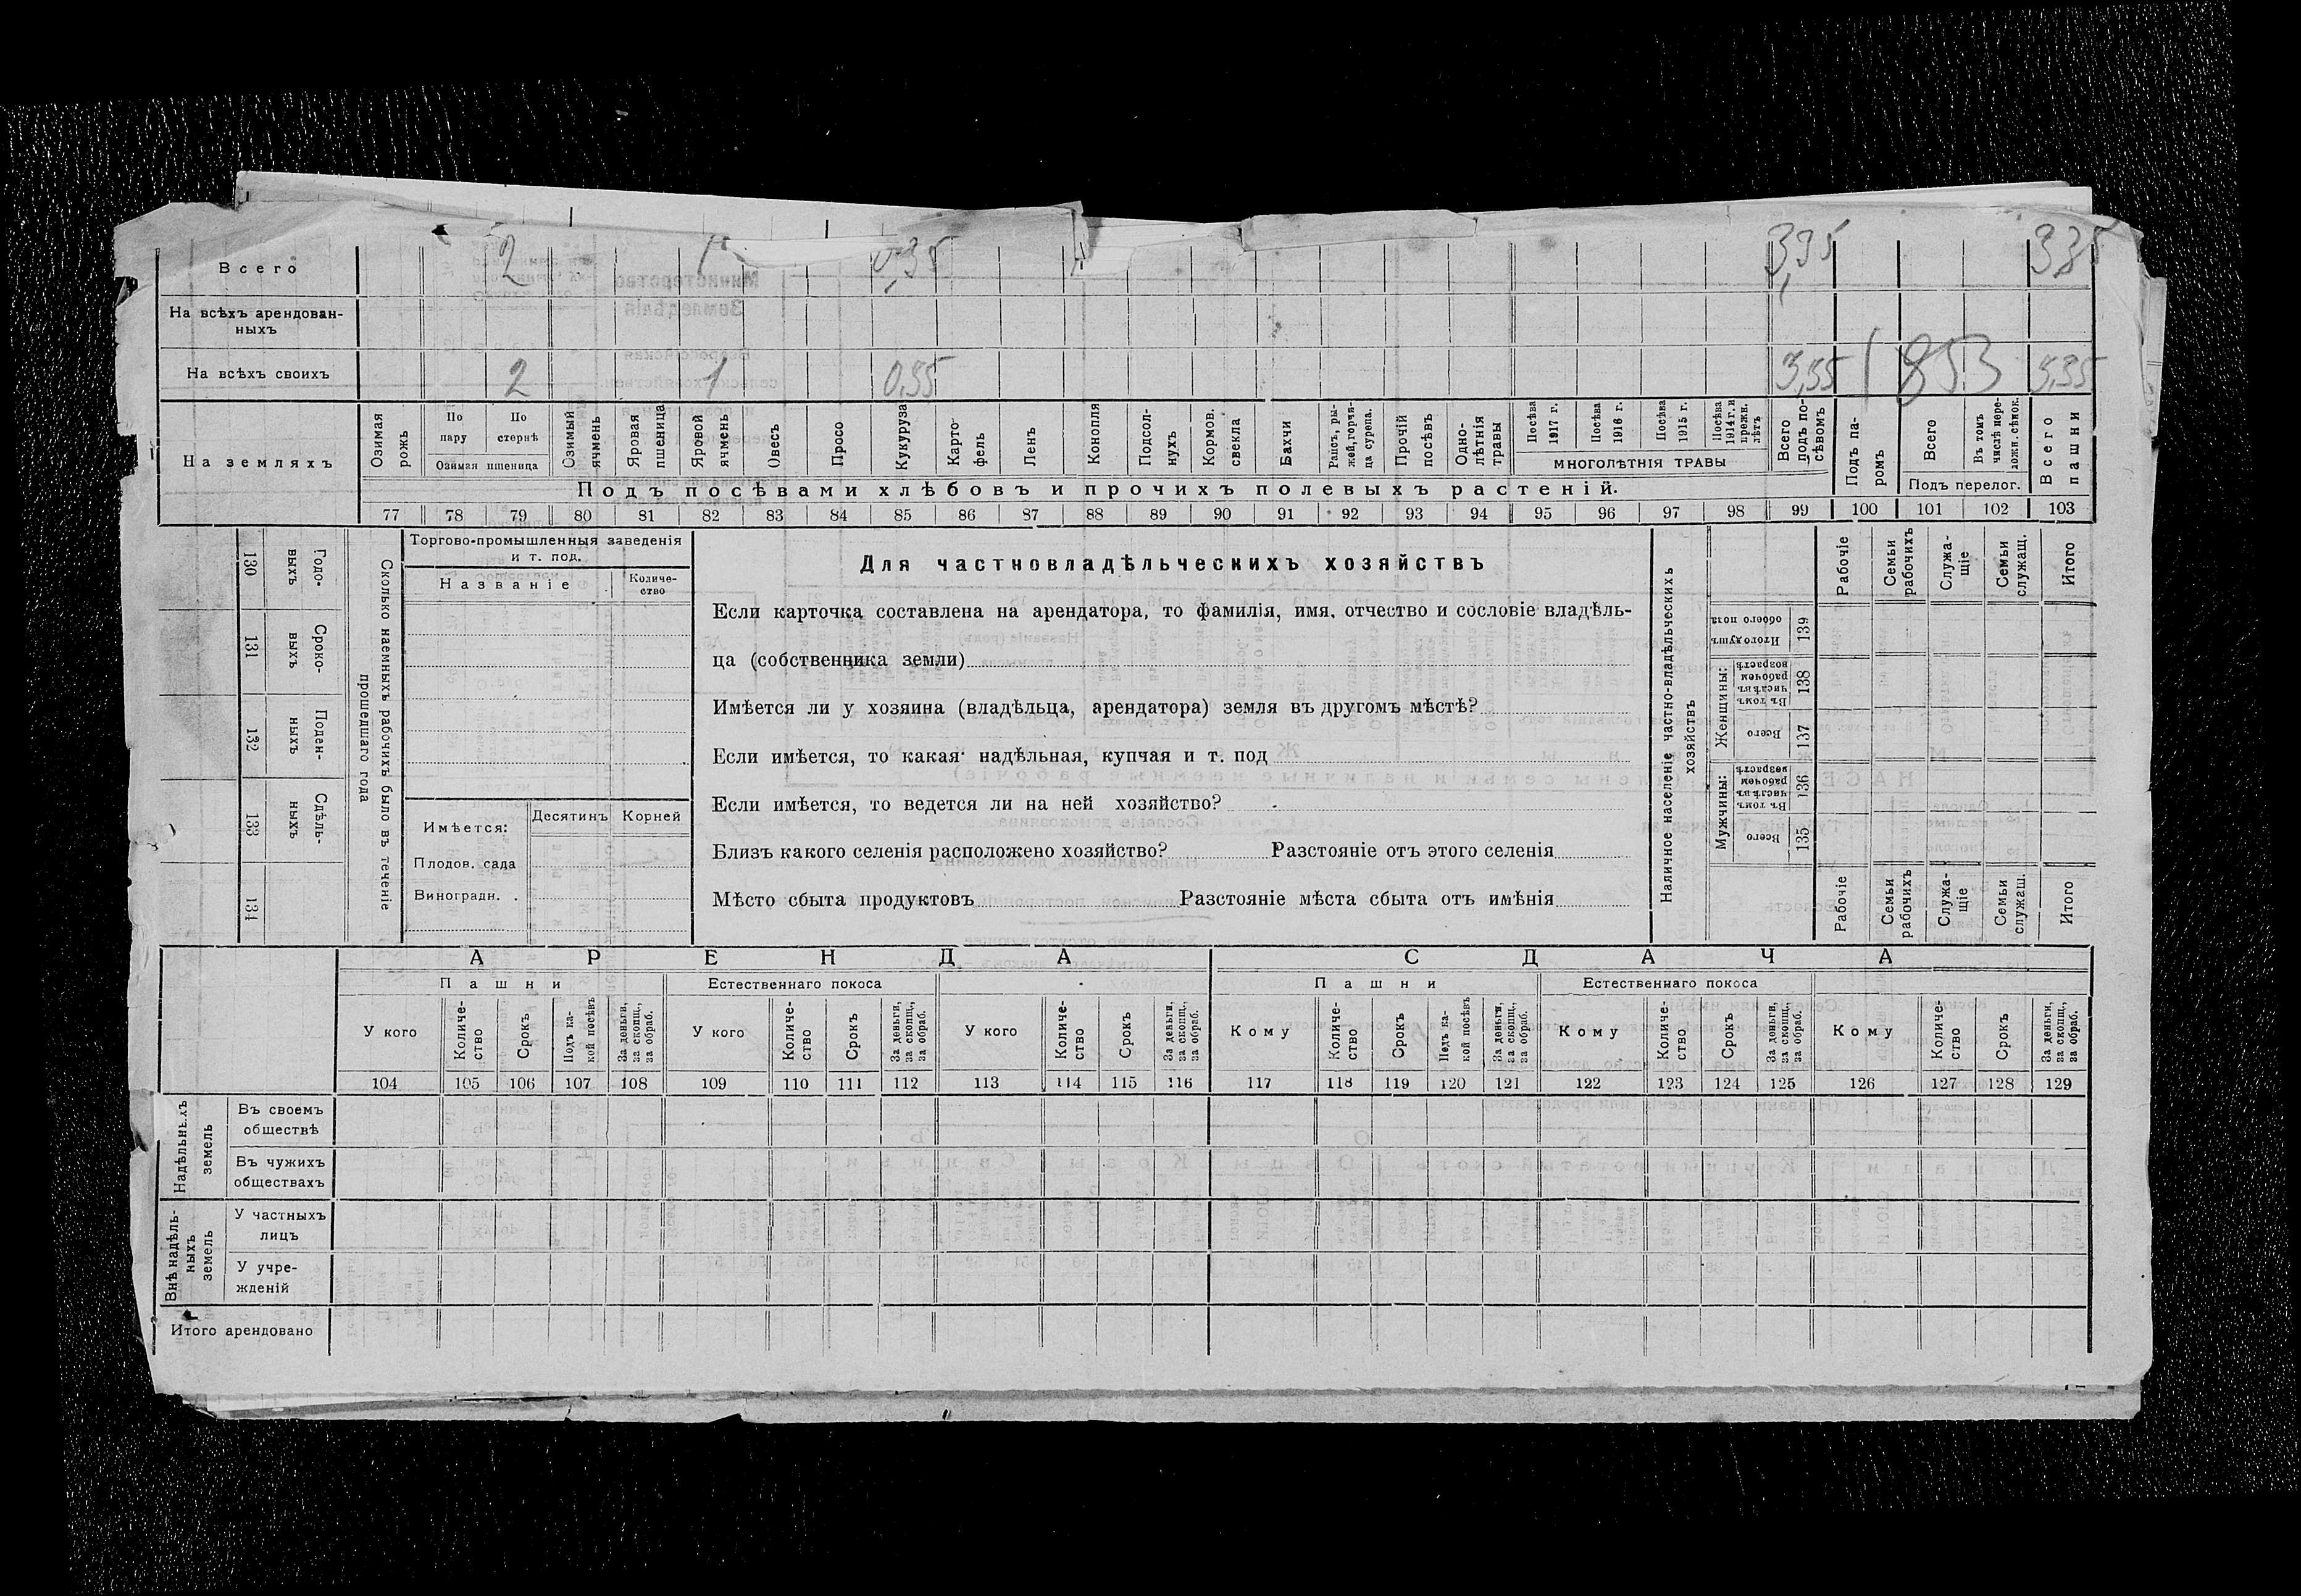 Всего 2 1 0,35 3,35 3,35
На всѣхъ арендован-
ныхъ
На всѣхъ своихъ 2 1 0,35 3,35 1853 3,35
На земляхъ
Озимая рожь
По пару
По стернѣ
Озимая пшеница
Озимый ячмень
Яровая пшеница
Яровой ячмень
Овесъ
Просо
Кукуруза
Карто-
фель
Ленъ
Конопля
Подсол-
нухъ
Кормов. свекла
Бахчи
Рапсъ, ры-
жей, горчи-
ца сурепа.
Прочій посѣвъ
Одно-
лѣтнія травы
Посѣва 1917 г.
Посѣва 1916 г.
Посѣва 1915 г.
Посѣва 1914 г. и прежн. лѣтъ
МНОГОЛѢТНІЯ ТРАВЫ
Всего подъ по-
сѣвомъ
Подъ па-
ромъ
Всего
Въ томъ числѣ пере-
ложн. сѣнок.
Подъ перелог.
Всего пашни
Подъ посѣвами хлѣбовъ и прочихъ полевыхъ растеній.
77 78 79 80 81 82 83 84 85 86 87 88 89 90 91 92 93 94 95 96 97 98 99 100 101 102 103
Сколько наемныхъ рабочихъ было въ теченіе
прошедшаго года
Годо-
выхъ
130
Сроко-
выхъ
131
Поден-
ныхъ
132
Сдѣль-
ныхъ
133
134
Торгово-промышленныя заведенія
и т. под.
Названіе
Количе-
ство
Имѣется: Десятинъ Корней
Плодов. сада
Виноградн.
Для частновладѣльческихъ хозяйствъ
Если карточка составлена на арендатора, то фамилія, имя, отчество и сословіе владѣль-
ца (собственника земли)
Имѣется ли у хозяина (владѣльца, арендатора) земля въ другомъ мѣстѣ?
Если имѣется, то какая: надѣльная, купчая и т. под
Если имѣется, то ведется ли на ней хозяйство?
Близъ какого селенія расположено хозяйство? Разстояніе отъ этого селенія
Мѣсто сбыта продуктовъ Разстояніе мѣста сбыта отъ имѣнія
Наличное населеніе частно-владѣльческихъ
хозяйствъ
Рабочіе
Семьи рабочихъ
Служа-
щіе
Семьи служащ.
Итого
Итого душъ обоего пола
139
Женщины:
Въ томъ числѣ въ рабочем возрастѣ
138
Всего
137
Мужчины:
Въ томъ числѣ въ рабочем возрастѣ
136
Всего
135
Рабочіе
Семьи рабочихъ
Служа-
щіе
Семьи служащ.
Итого
АРЕНДА СДАЧА
Пашни Естественнаго покоса Пашни Естественнаго покоса
У кого
Количе-
ство
Срокъ
Подъ ка-
кой посѣвъ
За деньги, за скопщ., за обраб.
У кого
Количе-
ство
Срокъ
За деньги, за скопщ., за обраб.
У кого
Количе-
ство
Срокъ
За деньги, за скопщ., за обраб.
Кому
Количе-
ство
Срокъ
Подъ ка-
кой посѣвъ
За деньги, за скопщ., за обраб.
Кому
Количе-
ство
Срокъ
За деньги, за скопщ., за обраб.
Кому
Количе-
ство
Срокъ
За деньги, за скопщ., за обраб.
104 105 106 107 108 109 110 111 112 113 114 115 116 117 118 119 120 121 122 123 124 125 126 127 128 129
Надѣльныхъ
земель
Въ своемъ
обществѣ
Въ чужихъ
обществахъ
Внѣ надѣль-
ныхъ
земель
У частныхъ
лицъ
У учре-
жденій
Итого арендовано